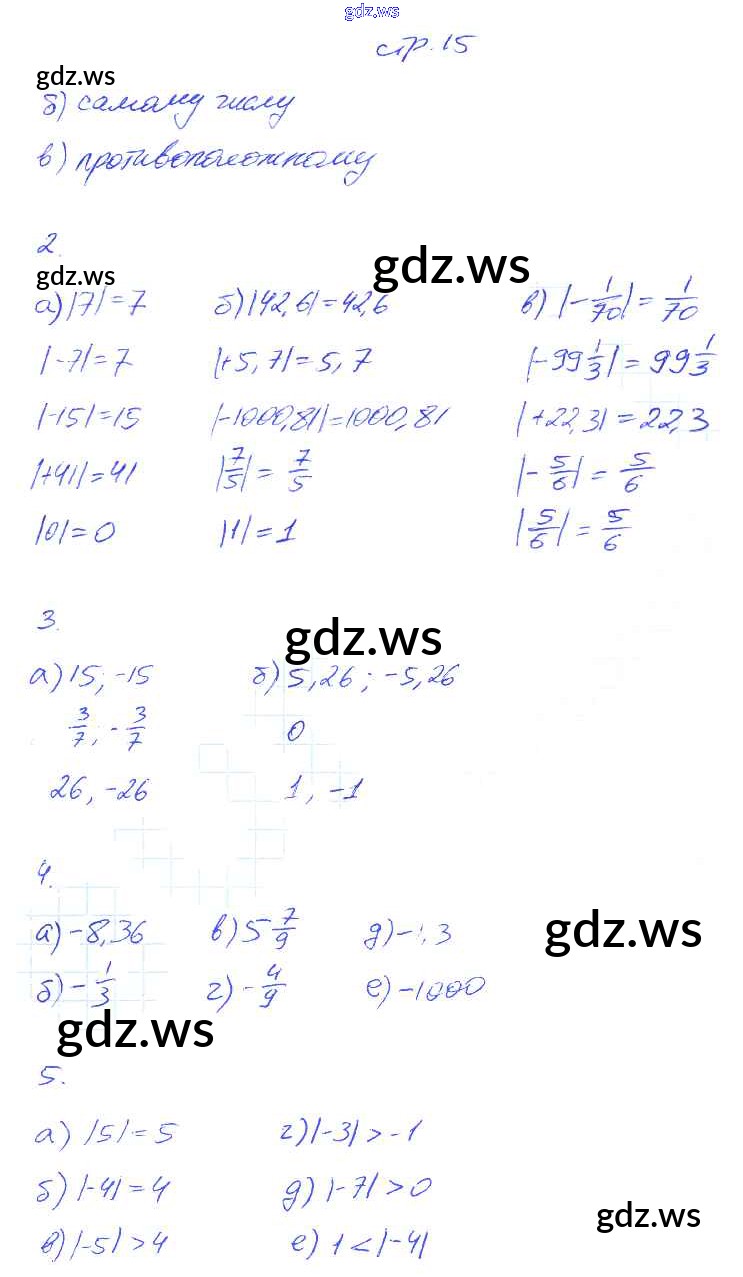 gdz.ws
стр. 15
gdz.ws
б) самому числу
в) противоположному
2.
gdz.ws
gdz.ws
а) |7| = 7 б) |42,6| = 42,6 в) |-1/70| = 1/70
|-7| = 7 |+5,7| = 5,7 |-99 1/3| = 99 1/3
|-15| = 15 |-1000,81| = 1000,81 |+22,3| = 22,3
|+41| = 41 |7/5| = 7/5 |-5/6| = 5/6
|0| = 0 |1| = 1 |5/6| = 5/6
3.
gdz.ws
а) 15; -15 б) 5,26; -5,26
3/7; -3/7 0
26, -26 1, -1
4.
а) -8,36 в) 5 7/9 д)
gdz.ws
б) -1/3 г) -4/9 е) -1000
gdz.ws
5.
а) |5| = 5 г) |-3| > -1
б) |-4| = 4 д) |-7| > 0
gdz.ws
в) |-5| > 4 е) 1 < |-4|